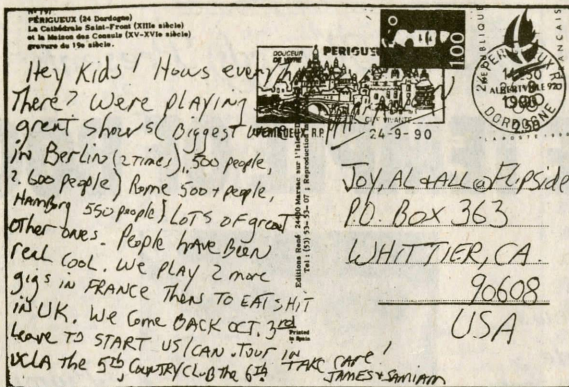 PÉRIGUEUX (24 Dordogne)
La Cathédrale Saint-Front (XIIIe siècle)
et la Maison des Consuls (XV-XVIe siècle)
gravure du 19e siècle.
Hey Kids! Hows every
There? Were playing
great shows (Biggest
in Berlin (2 Times), 500 people,
2. 600 people) Rome 500+ people,
Hamburg 550 people) LOTS OF great
other ones. People have been
real cool. We play 2 more
gigs in FRANCE Then TO EAT SHIT
in UK. We come BACK OCT. 3rd
leave TO START US/CAN. Tour IN
UCLA The 5th, Country Club the 6th
TAKE CARE!
JAMES & SAMIAM
Printed
in Spain
DOUCEUR
DE VIVRE
PERIGUEUX
PERIGUEUX R.P.
24-9-90
100
RÉPUBLIQUE
FRANÇAISE
LA POSTE 1990
ALBERTVILLE 92
DORDOGNE
JOY, AL & ALL @ Flipside
P.O. BOX 363
WHITTIER, CA.
90608
USA